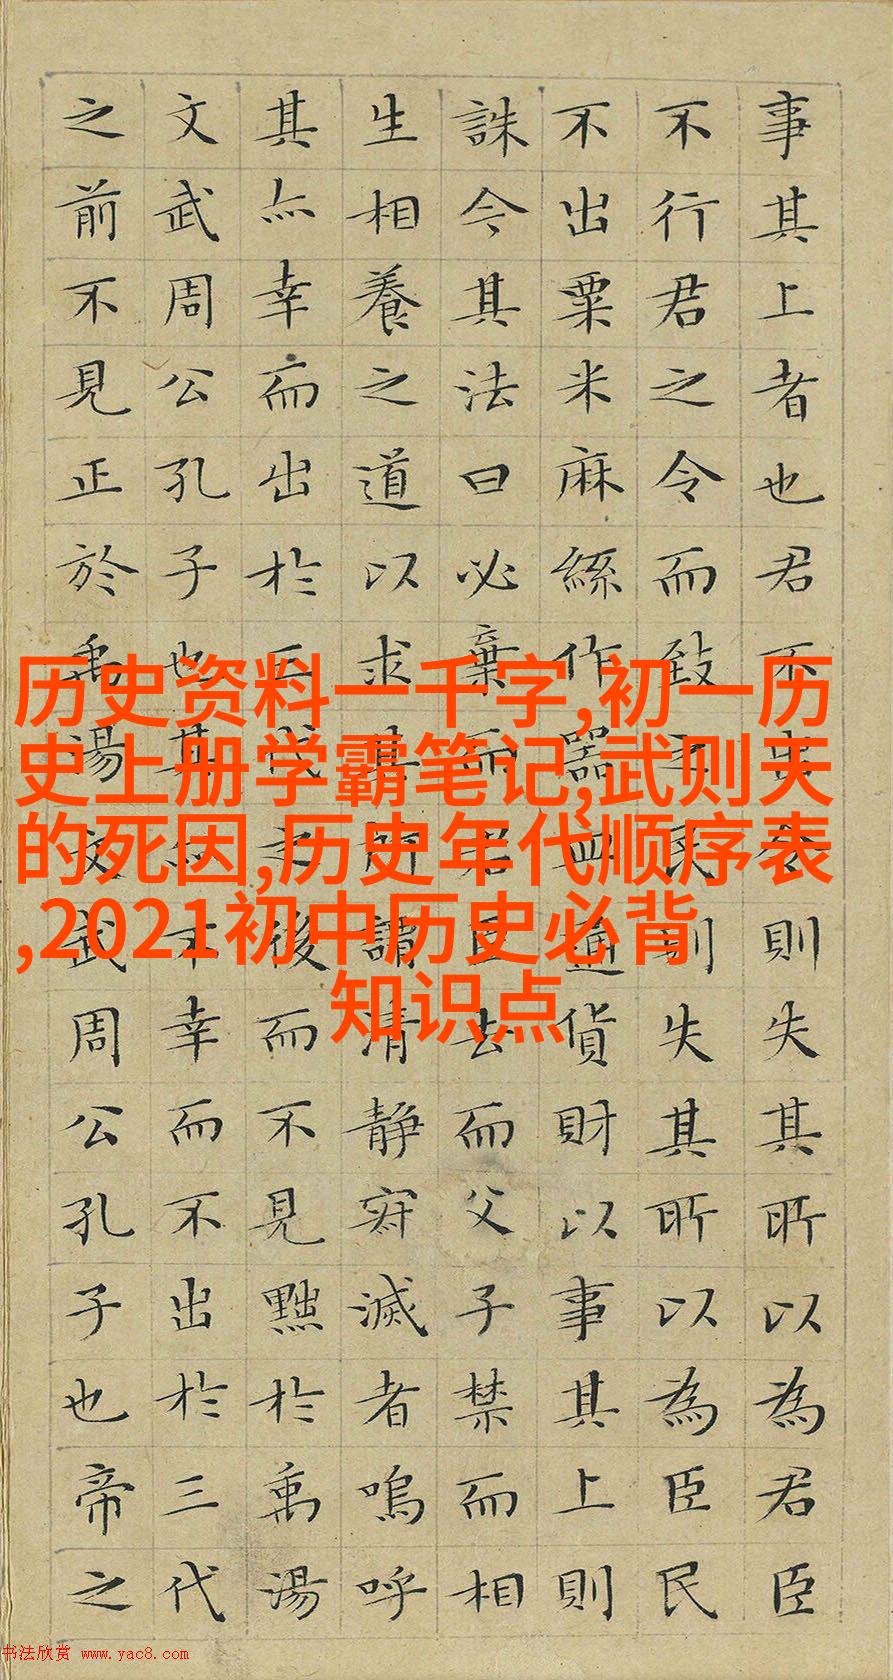 历史资料一千字,初一历
史上册学霸笔记,武则天
的死因,历史年代顺序表
,2021初中历史必背
知识点
事其上者也君不出令則失其所以為君臣
不行君之令而致之民則失其所以為臣民
不出粟米麻絲作器皿通貨財以事其上則
誅今其法曰必棄而君臣去而父子禁而相
生相養之道以求其所謂清静寂滅者嗚呼
其亦幸而出於三代之後而不見黜於禹湯
文武周公孔子也其亦不幸而不出於三代
之前不見正於禹湯文武周公孔子也帝之
书法欣赏 www.yac8.com